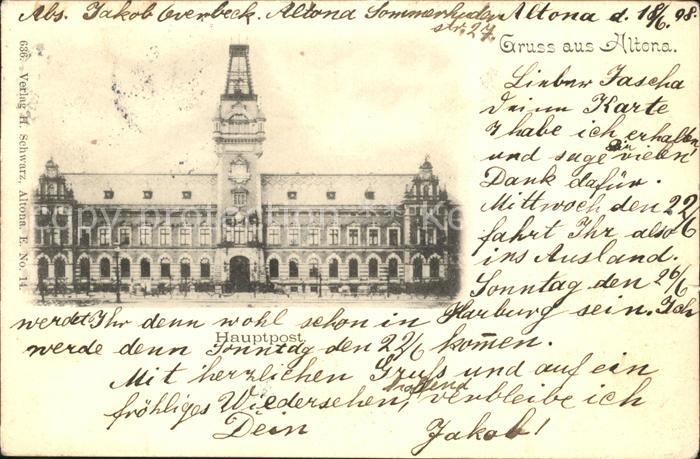 Abs. Jakob Overbeck. Altona Sommerhuder
str. 27.
Altona d. 18/6. 98.
Gruss aus Altona.
Lieber Jascha
Deine Karte
habe ich erhalten
und sage vielen
Dank dafür.
Mittwoch den 22/6
fahrt Ihr also
ins Ausland.
Sonntag den 26/6
werdet Ihr denn wohl schon in Harburg sein. Ich
Hauptpost.
werde denn Sonntag den 22/6 kom̄en.
Mit herzlichen Gruss und auf ein
fröhliges Wiedersehen, hoffend verbleibe ich
Dein Jakob!
636. Verlag H. Schwarz, Altona. E. No. 14.
copy protection